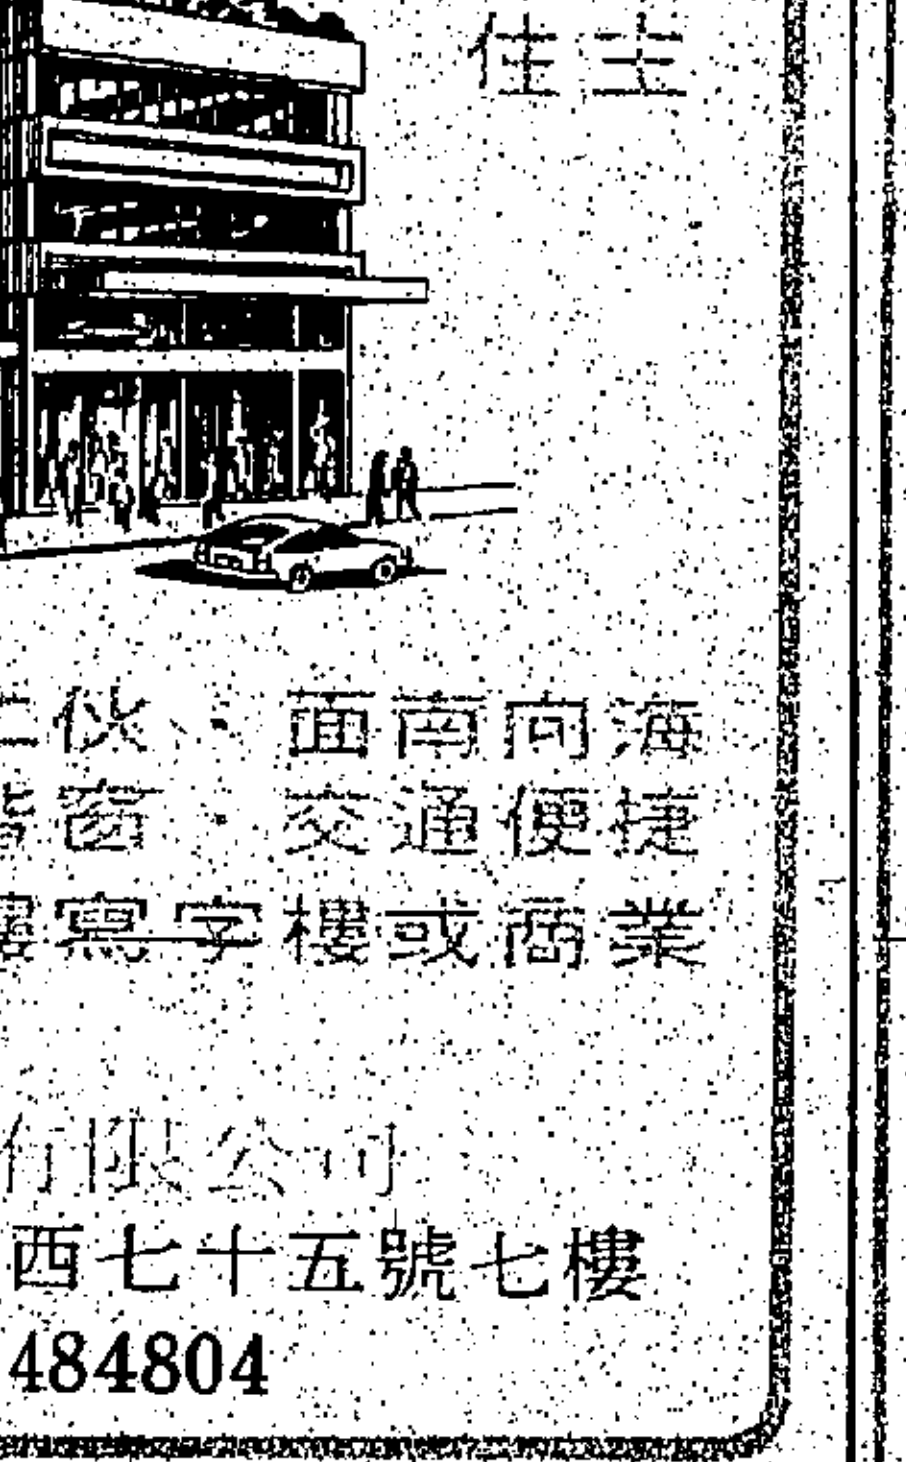 住主
伙、面南向海
窗・交通便捷
樓寫字樓或商業
有限公司
西七十五號七樓
484804